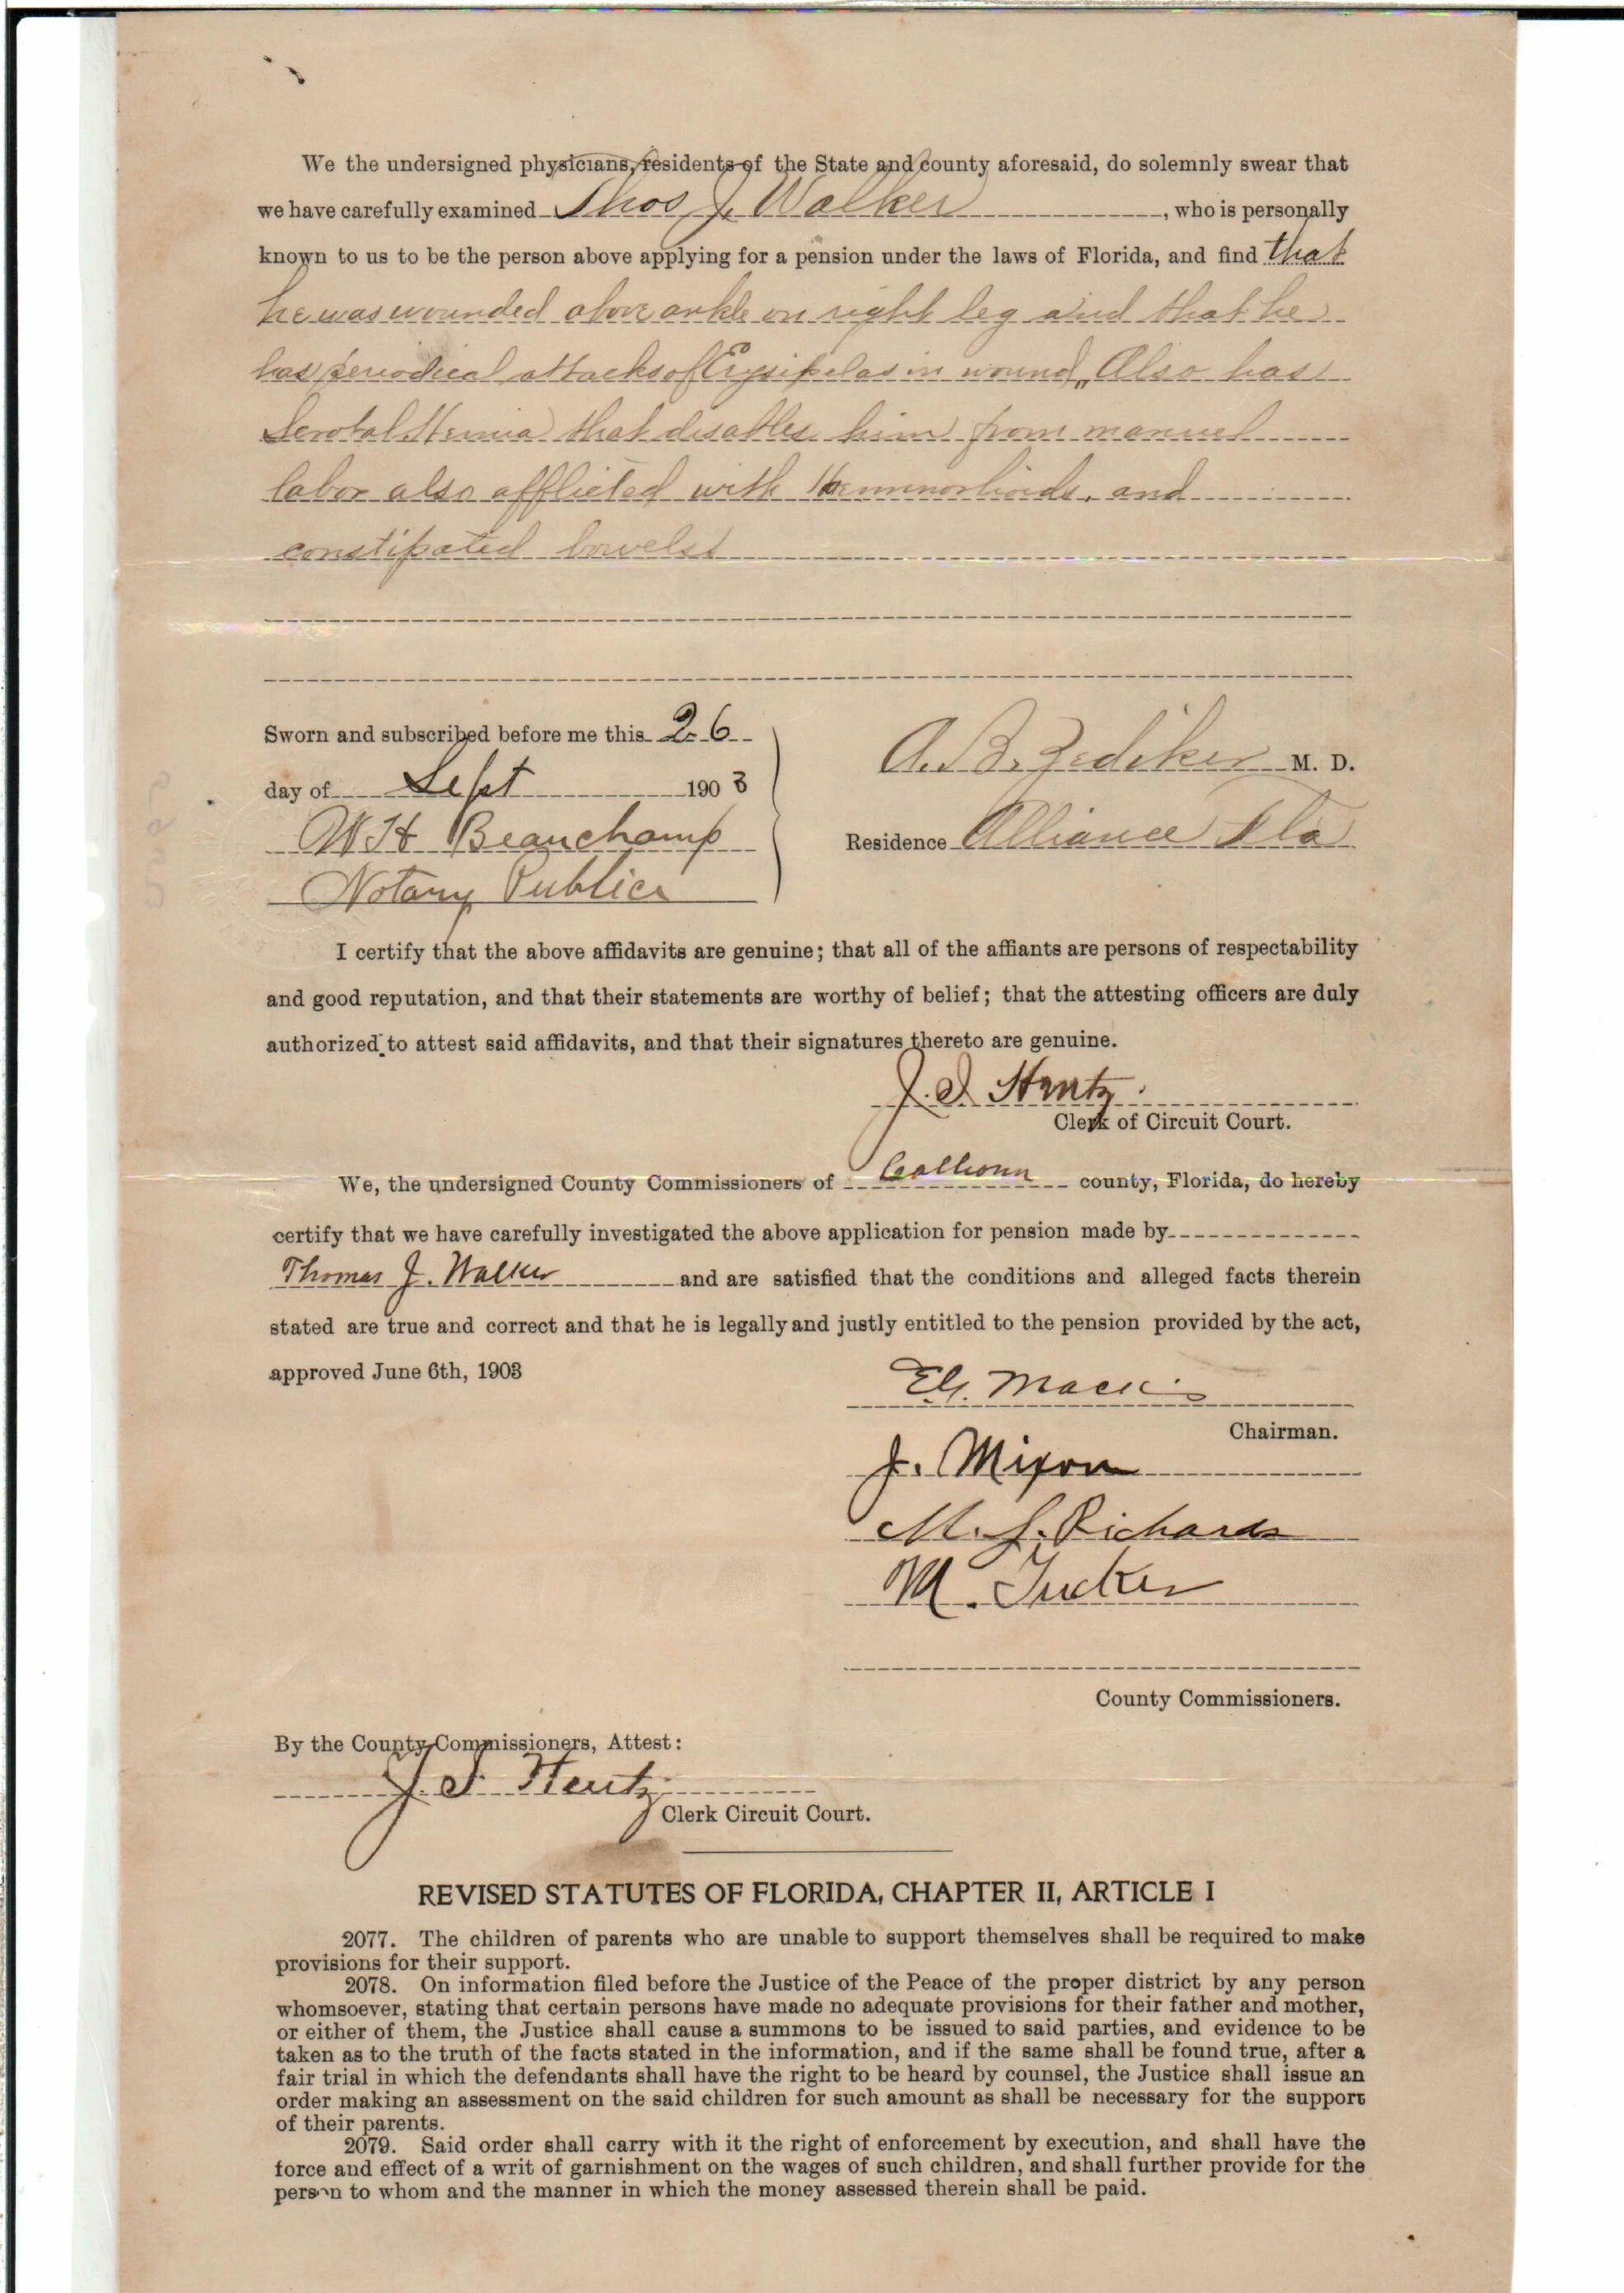 We the undersigned physicians, residents of the State and county aforesaid, do solemnly swear that
we have carefully examined Thos J. Walker, who is personally
known to us to be the person above applying for a pension under the laws of Florida, and find that
he was wounded above ankle on right leg and that he
has periodical attacks of Erysipelas in wound, Also has
Scrotal Hernia that disables him from manuel
labor also afflicted with Hemmorhoids, and
constipated bowels
Sworn and subscribed before me this 26
day of Sept 1903
W H Beauchamp
Notary Public
A. B. Zediker M. D.
Residence Alliance Fla
I certify that the above affidavits are genuine; that all of the affiants are persons of respectability
and good reputation, and that their statements are worthy of belief; that the attesting officers are duly
authorized to attest said affidavits, and that their signatures thereto are genuine.
J. S. Hentz
Clerk of Circuit Court.
We, the undersigned County Commissioners of Calhoun county, Florida, do hereby
certify that we have carefully investigated the above application for pension made by
Thomas J. Walker and are satisfied that the conditions and alleged facts therein
stated are true and correct and that he is legally and justly entitled to the pension provided by the act,
approved June 6th, 1903
Chairman.
J. Mixon
M. L. Richards
M. Tucker
County Commissioners.
By the County Commissioners, Attest:
J. S. Hentz
Clerk Circuit Court.
REVISED STATUTES OF FLORIDA, CHAPTER II, ARTICLE I
2077. The children of parents who are unable to support themselves shall be required to make
provisions for their support.
2078. On information filed before the Justice of the Peace of the proper district by any person
whomsoever, stating that certain persons have made no adequate provisions for their father and mother,
or either of them, the Justice shall cause a summons to be issued to said parties, and evidence to be
taken as to the truth of the facts stated in the information, and if the same shall be found true, after a
fair trial in which the defendants shall have the right to be heard by counsel, the Justice shall issue an
order making an assessment on the said children for such amount as shall be necessary for the support
of their parents.
2079. Said order shall carry with it the right of enforcement by execution, and shall have the
force and effect of a writ of garnishment on the wages of such children, and shall further provide for the
person to whom and the manner in which the money assessed therein shall be paid.